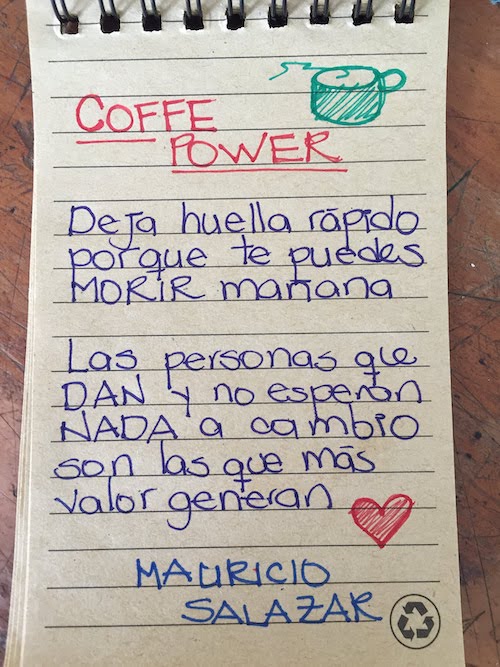 COFFE
POWER
Deja huella rápido
porque te puedes
MORIR mañana
Las personas que
DAN y no esperan
NADA a cambio
son las que más
valor generan
MAURICIO
SALAZAR